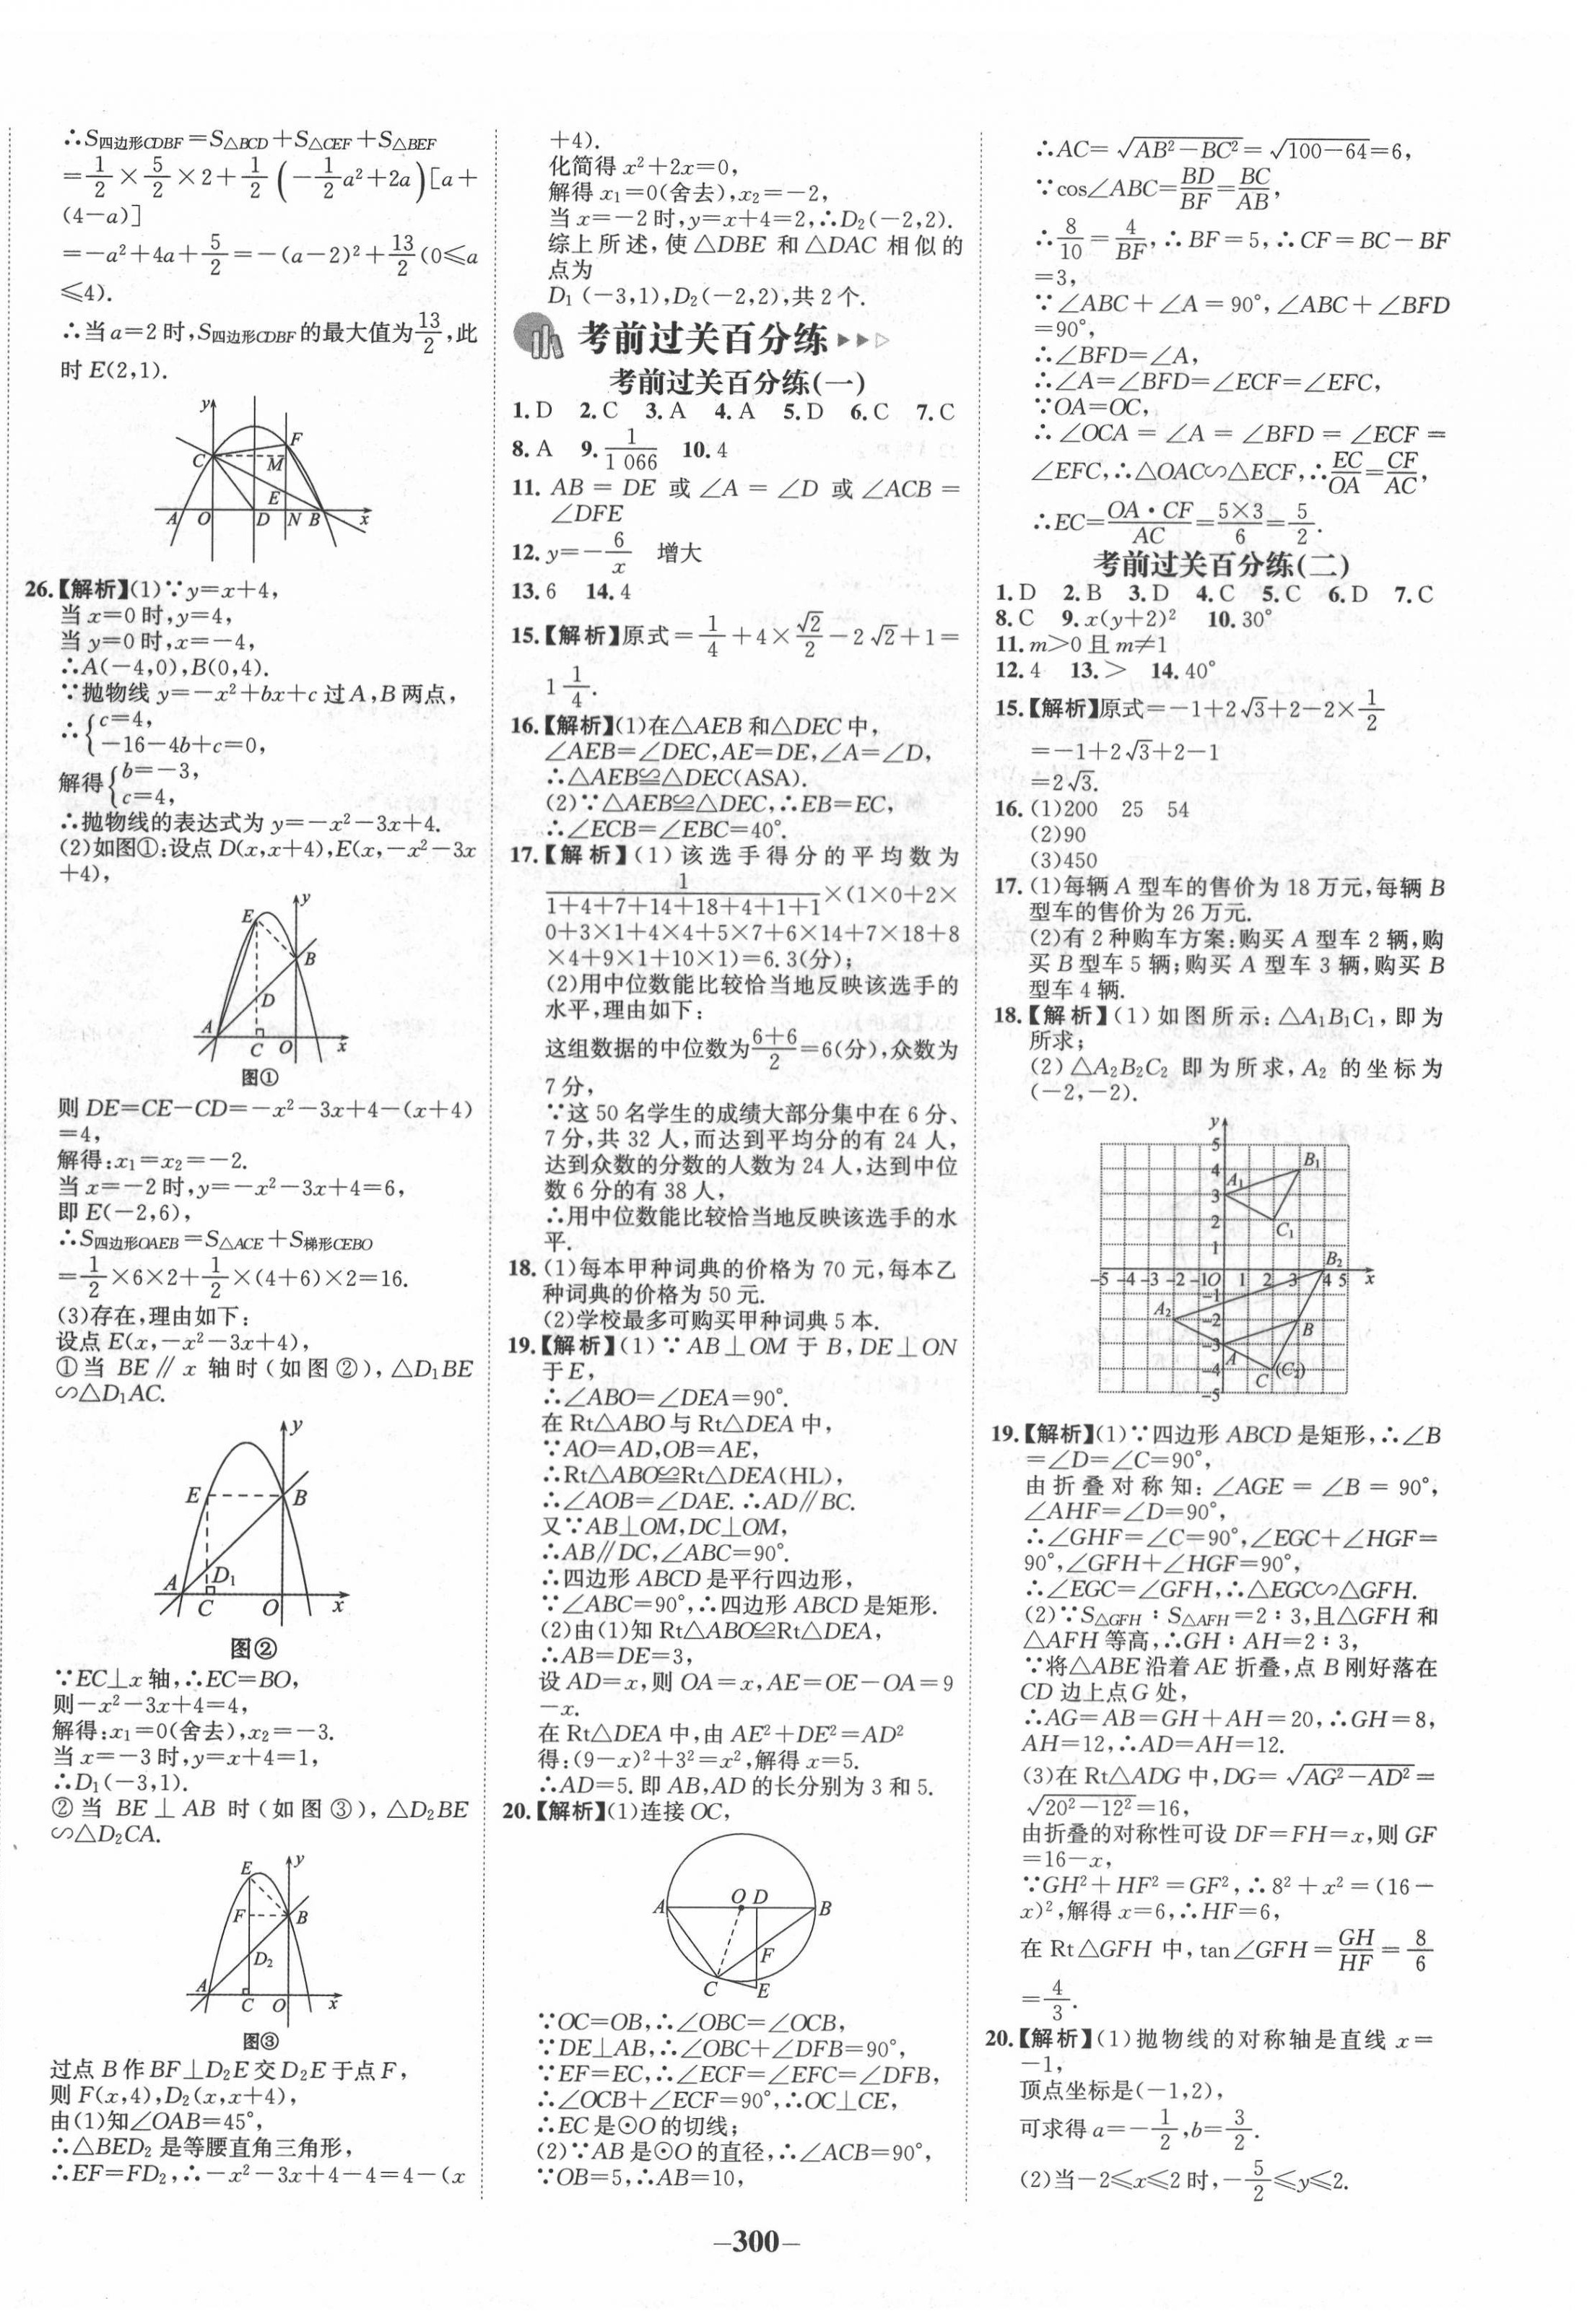 ∴S四边形CDBF=S△BCD+S△CEF+S△BEF
=1/2×5/2×2+1/2(-1/2a²+2a)[a+
(4-a)]
=-a²+4a+5/2=-(a-2)²+13/2(0≤a
≤4).
∴当a=2时,S四边形CDBF的最大值为13/2,此
时E(2,1).
y
F
C
M
E
A O D N B x
26.【解析】(1)∵y=x+4,
当x=0时,y=4,
当y=0时,x=-4,
∴A(-4,0),B(0,4).
∵抛物线y=-x²+bx+c过A,B两点,
∴{c=4,
-16-4b+c=0,
解得{b=-3,
c=4,
∴抛物线的表达式为y=-x²-3x+4.
(2)如图①:设点D(x,x+4),E(x,-x²-3x
+4),
E y
B
D
A
C O x
图①
则DE=CE-CD=-x²-3x+4-(x+4)
=4,
解得:x₁=x₂=-2.
当x=-2时,y=-x²-3x+4=6,
即E(-2,6),
∴S四边形OAEB=S△ACE+S梯形CEBO
=1/2×6×2+1/2×(4+6)×2=16.
(3)存在,理由如下:
设点E(x,-x²-3x+4),
①当BE∥x轴时(如图②),△D₁BE
∽△D₁AC.
y
E B
A D₁
C O x
图②
∵EC⊥x轴,∴EC=BO,
则-x²-3x+4=4,
解得:x₁=0(舍去),x₂=-3.
当x=-3时,y=x+4=1,
∴D₁(-3,1).
②当BE⊥AB时(如图③),△D₂BE
∽△D₂CA.
E y
F B
D₂
A
C O x
图③
过点B作BF⊥D₂E交D₂E于点F,
则F(x,4),D₂(x,x+4),
由(1)知∠OAB=45°,
∴△BED₂是等腰直角三角形,
∴EF=FD₂,∴-x²-3x+4-4=4-(x
+4).
化简得x²+2x=0,
解得x₁=0(舍去),x₂=-2,
当x=-2时,y=x+4=2,∴D₂(-2,2).
综上所述,使△DBE和△DAC相似的
点为
D₁(-3,1),D₂(-2,2),共2个.
考前过关百分练
考前过关百分练(一)
1.D 2.C 3.A 4.A 5.D 6.C 7.C
8.A 9.1/1 066 10.4
11. AB=DE或∠A=∠D或∠ACB=
∠DFE
12. y=-6/x 增大
13.6 14.4
15.【解析】原式=1/4+4×√2/2-2√2+1=
1 1/4.
16.【解析】(1)在△AEB和△DEC中,
∠AEB=∠DEC,AE=DE,∠A=∠D,
∴△AEB≌△DEC(ASA).
(2)∵△AEB≌△DEC,∴EB=EC,
∴∠ECB=∠EBC=40°.
17.【解析】(1)该选手得分的平均数为
1/(1+4+7+14+18+4+1+1)×(1×0+2×
0+3×1+4×4+5×7+6×14+7×18+8
×4+9×1+10×1)=6.3(分);
(2)用中位数能比较恰当地反映该选手的
水平,理由如下:
这组数据的中位数为(6+6)/2=6(分),众数为
7分,
∵这50名学生的成绩大部分集中在6分、
7分,共32人,而达到平均分的有24人,
达到众数的分数的人数为24人,达到中位
数6分的有38人,
∴用中位数能比较恰当地反映该选手的水
平.
18.(1)每本甲种词典的价格为70元,每本乙
种词典的价格为50元.
(2)学校最多可购买甲种词典5本.
19.【解析】(1)∵AB⊥OM于B,DE⊥ON
于E,
∴∠ABO=∠DEA=90°.
在Rt△ABO与Rt△DEA中,
∵AO=AD,OB=AE,
∴Rt△ABO≌Rt△DEA(HL),
∴∠AOB=∠DAE.∴AD∥BC.
又∵AB⊥OM,DC⊥OM,
∴AB∥DC,∠ABC=90°.
∴四边形ABCD是平行四边形,
∵∠ABC=90°,∴四边形ABCD是矩形.
(2)由(1)知Rt△ABO≌Rt△DEA,
∴AB=DE=3,
设AD=x,则OA=x,AE=OE-OA=9
-x.
在Rt△DEA中,由AE²+DE²=AD²
得:(9-x)²+3²=x²,解得x=5.
∴AD=5.即AB,AD的长分别为3和5.
20.【解析】(1)连接OC,
A O D B
F
C E
∵OC=OB,∴∠OBC=∠OCB,
∵DE⊥AB,∴∠OBC+∠DFB=90°,
∵EF=EC,∴∠ECF=∠EFC=∠DFB,
∴∠OCB+∠ECF=90°,∴OC⊥CE,
∴EC是⊙O的切线;
(2)∵AB是⊙O的直径,∴∠ACB=90°,
∵OB=5,∴AB=10,
∴AC=√(AB²-BC²)=√(100-64)=6,
∵cos∠ABC=BD/BF=BC/AB,
∴8/10=4/BF,∴BF=5,∴CF=BC-BF
=3,
∵∠ABC+∠A=90°,∠ABC+∠BFD
=90°,
∴∠BFD=∠A,
∴∠A=∠BFD=∠ECF=∠EFC,
∵OA=OC,
∴∠OCA=∠A=∠BFD=∠ECF=
∠EFC,∴△OAC∽△ECF,∴EC/OA=CF/AC,
∴EC=OA·CF/AC=5×3/6=5/2.
考前过关百分练(二)
1.D 2.B 3.D 4.C 5.C 6.D 7.C
8.C 9.x(y+2)² 10.30°
11.m>0且m≠1
12.4 13.> 14.40°
15.【解析】原式=-1+2√3+2-2×1/2
=-1+2√3+2-1
=2√3.
16.(1)200 25 54
(2)90
(3)450
17.(1)每辆A型车的售价为18万元,每辆B
型车的售价为26万元.
(2)有2种购车方案:购买A型车2辆,购
买B型车5辆;购买A型车3辆,购买B
型车4辆.
18.【解析】(1)如图所示:△A₁B₁C₁,即为
所求;
(2)△A₂B₂C₂即为所求,A₂的坐标为
(-2,-2).
y
5
4 B₁
A₁
3
2 C₁
1
B₂
-5 -4 -3 -2 -1 O 1 2 3 4 5 x
-1
A₂
-2 B
-3 A
-4 C (C₂)
-5
19.【解析】(1)∵四边形ABCD是矩形,∴∠B
=∠D=∠C=90°,
由折叠对称知:∠AGE=∠B=90°,
∠AHF=∠D=90°,
∴∠GHF=∠C=90°,∠EGC+∠HGF=
90°,∠GFH+∠HGF=90°,
∴∠EGC=∠GFH,∴△EGC∽△GFH.
(2)∵S△GFH:S△AFH=2:3,且△GFH和
△AFH等高,∴GH:AH=2:3,
∵将△ABE沿着AE折叠,点B刚好落在
CD边上点G处,
∴AG=AB=GH+AH=20,∴GH=8,
AH=12,∴AD=AH=12.
(3)在Rt△ADG中,DG=√(AG²-AD²)=
√(20²-12²)=16,
由折叠的对称性可设DF=FH=x,则GF
=16-x,
∵GH²+HF²=GF²,∴8²+x²=(16-
x)²,解得x=6,∴HF=6,
在Rt△GFH中,tan∠GFH=GH/HF=8/6
=4/3.
20.【解析】(1)抛物线的对称轴是直线x=
-1,
顶点坐标是(-1,2),
可求得a=-1/2,b=3/2.
(2)当-2≤x≤2时,-5/2≤y≤2.
-300-